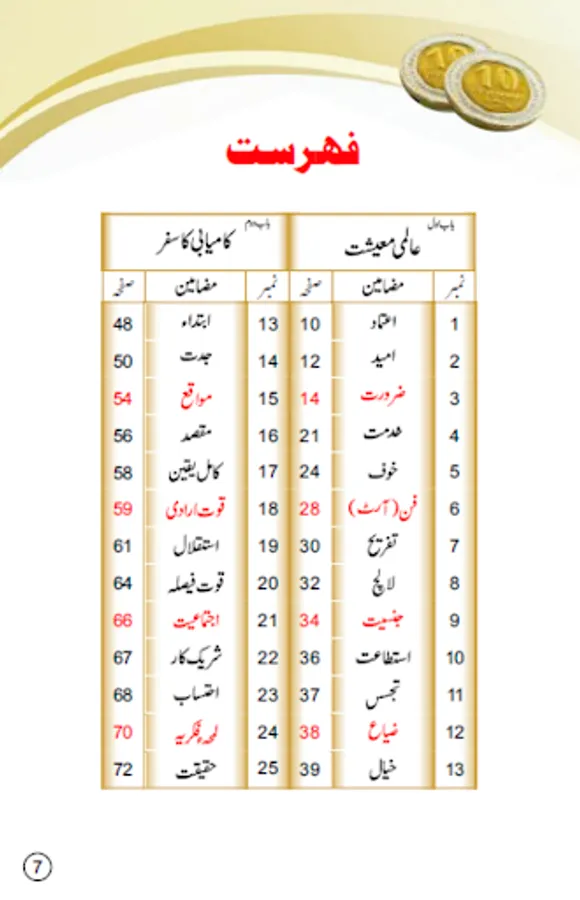 فہرست
باب اول عالمی معیشت باب دوم کامیابی کا سفر
نمبر مضامین صفحہ نمبر مضامین صفحہ
1 اعتماد 10 13 ابتداء 48
2 امید 12 14 جدت 50
3 ضرورت 14 15 مواقع 54
4 شدمت 21 16 مقصد 56
5 خوف 24 17 کامل یقین 58
6 فن (آرٹ) 28 18 قوت ارادی 59
7 تفریح 30 19 استقلال 61
8 لالچ 32 20 قوت فیصلہ 64
9 جنسیت 34 21 اجتماعیت 66
10 استطاعت 36 22 شریک کار 67
11 تجسس 37 23 احتساب 68
12 ضیاع 38 24 لمحہ فکریہ 70
13 خیال 39 25 حقیقت 72
7